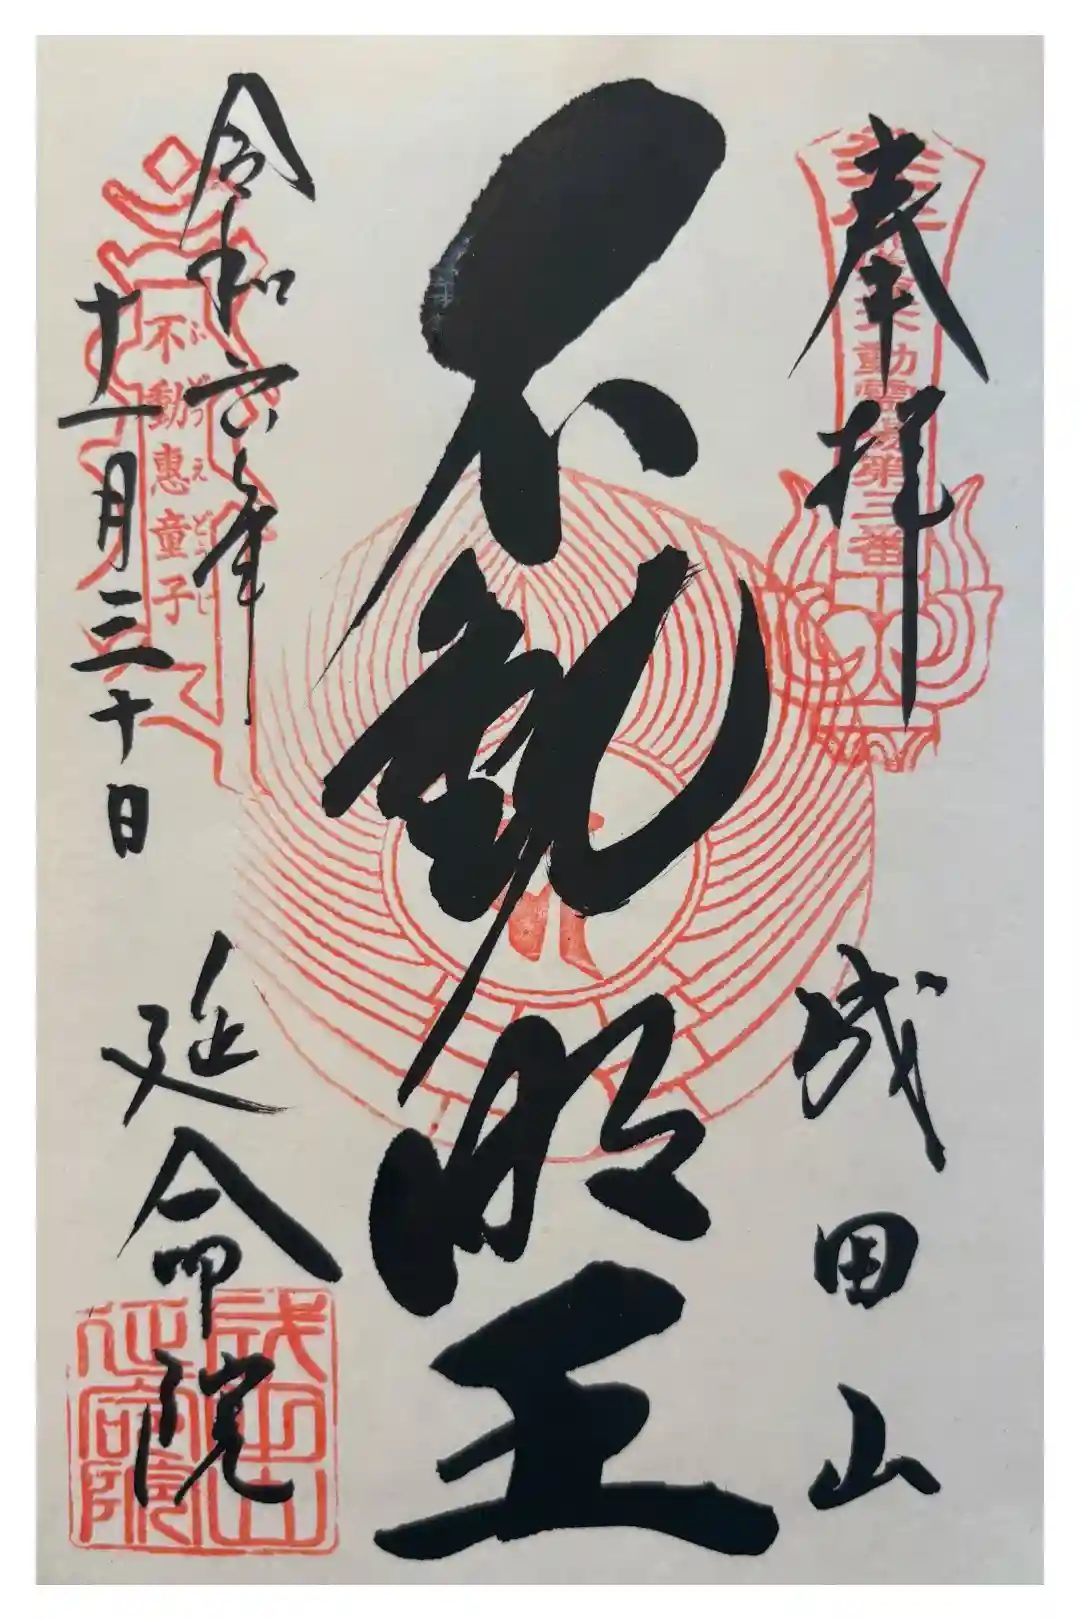 奉拝
成田山
不動明王
令和六年
十一月三十日
延命院
動霊場第三番
不動惠童子
ふどうえどうじ
成田山
延命院